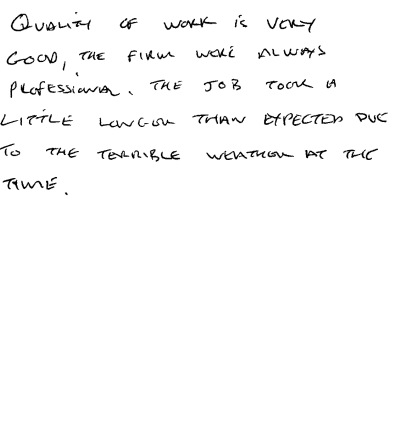 QUALITY OF WORK IS VERY
GOOD, THE FIRM WERE ALWAYS
PROFESSIONAL. THE JOB TOOK A
LITTLE LONGER THAN EXPECTED DUE
TO THE TERRIBLE WEATHER AT THE
TIME.